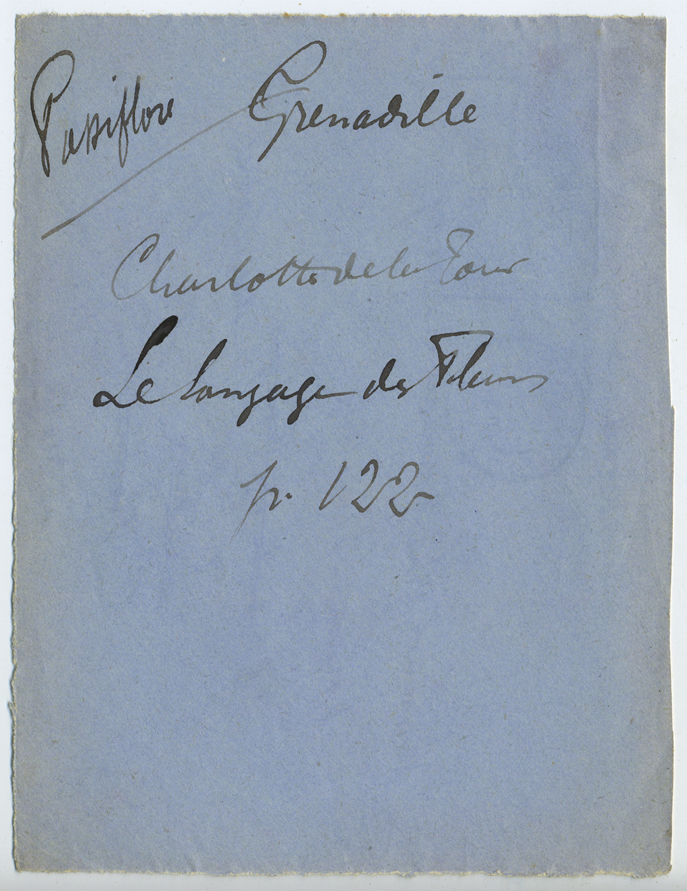 Passiflore Grenadille
Charlotte de la Tour
Le langage des Fleurs
p. 122